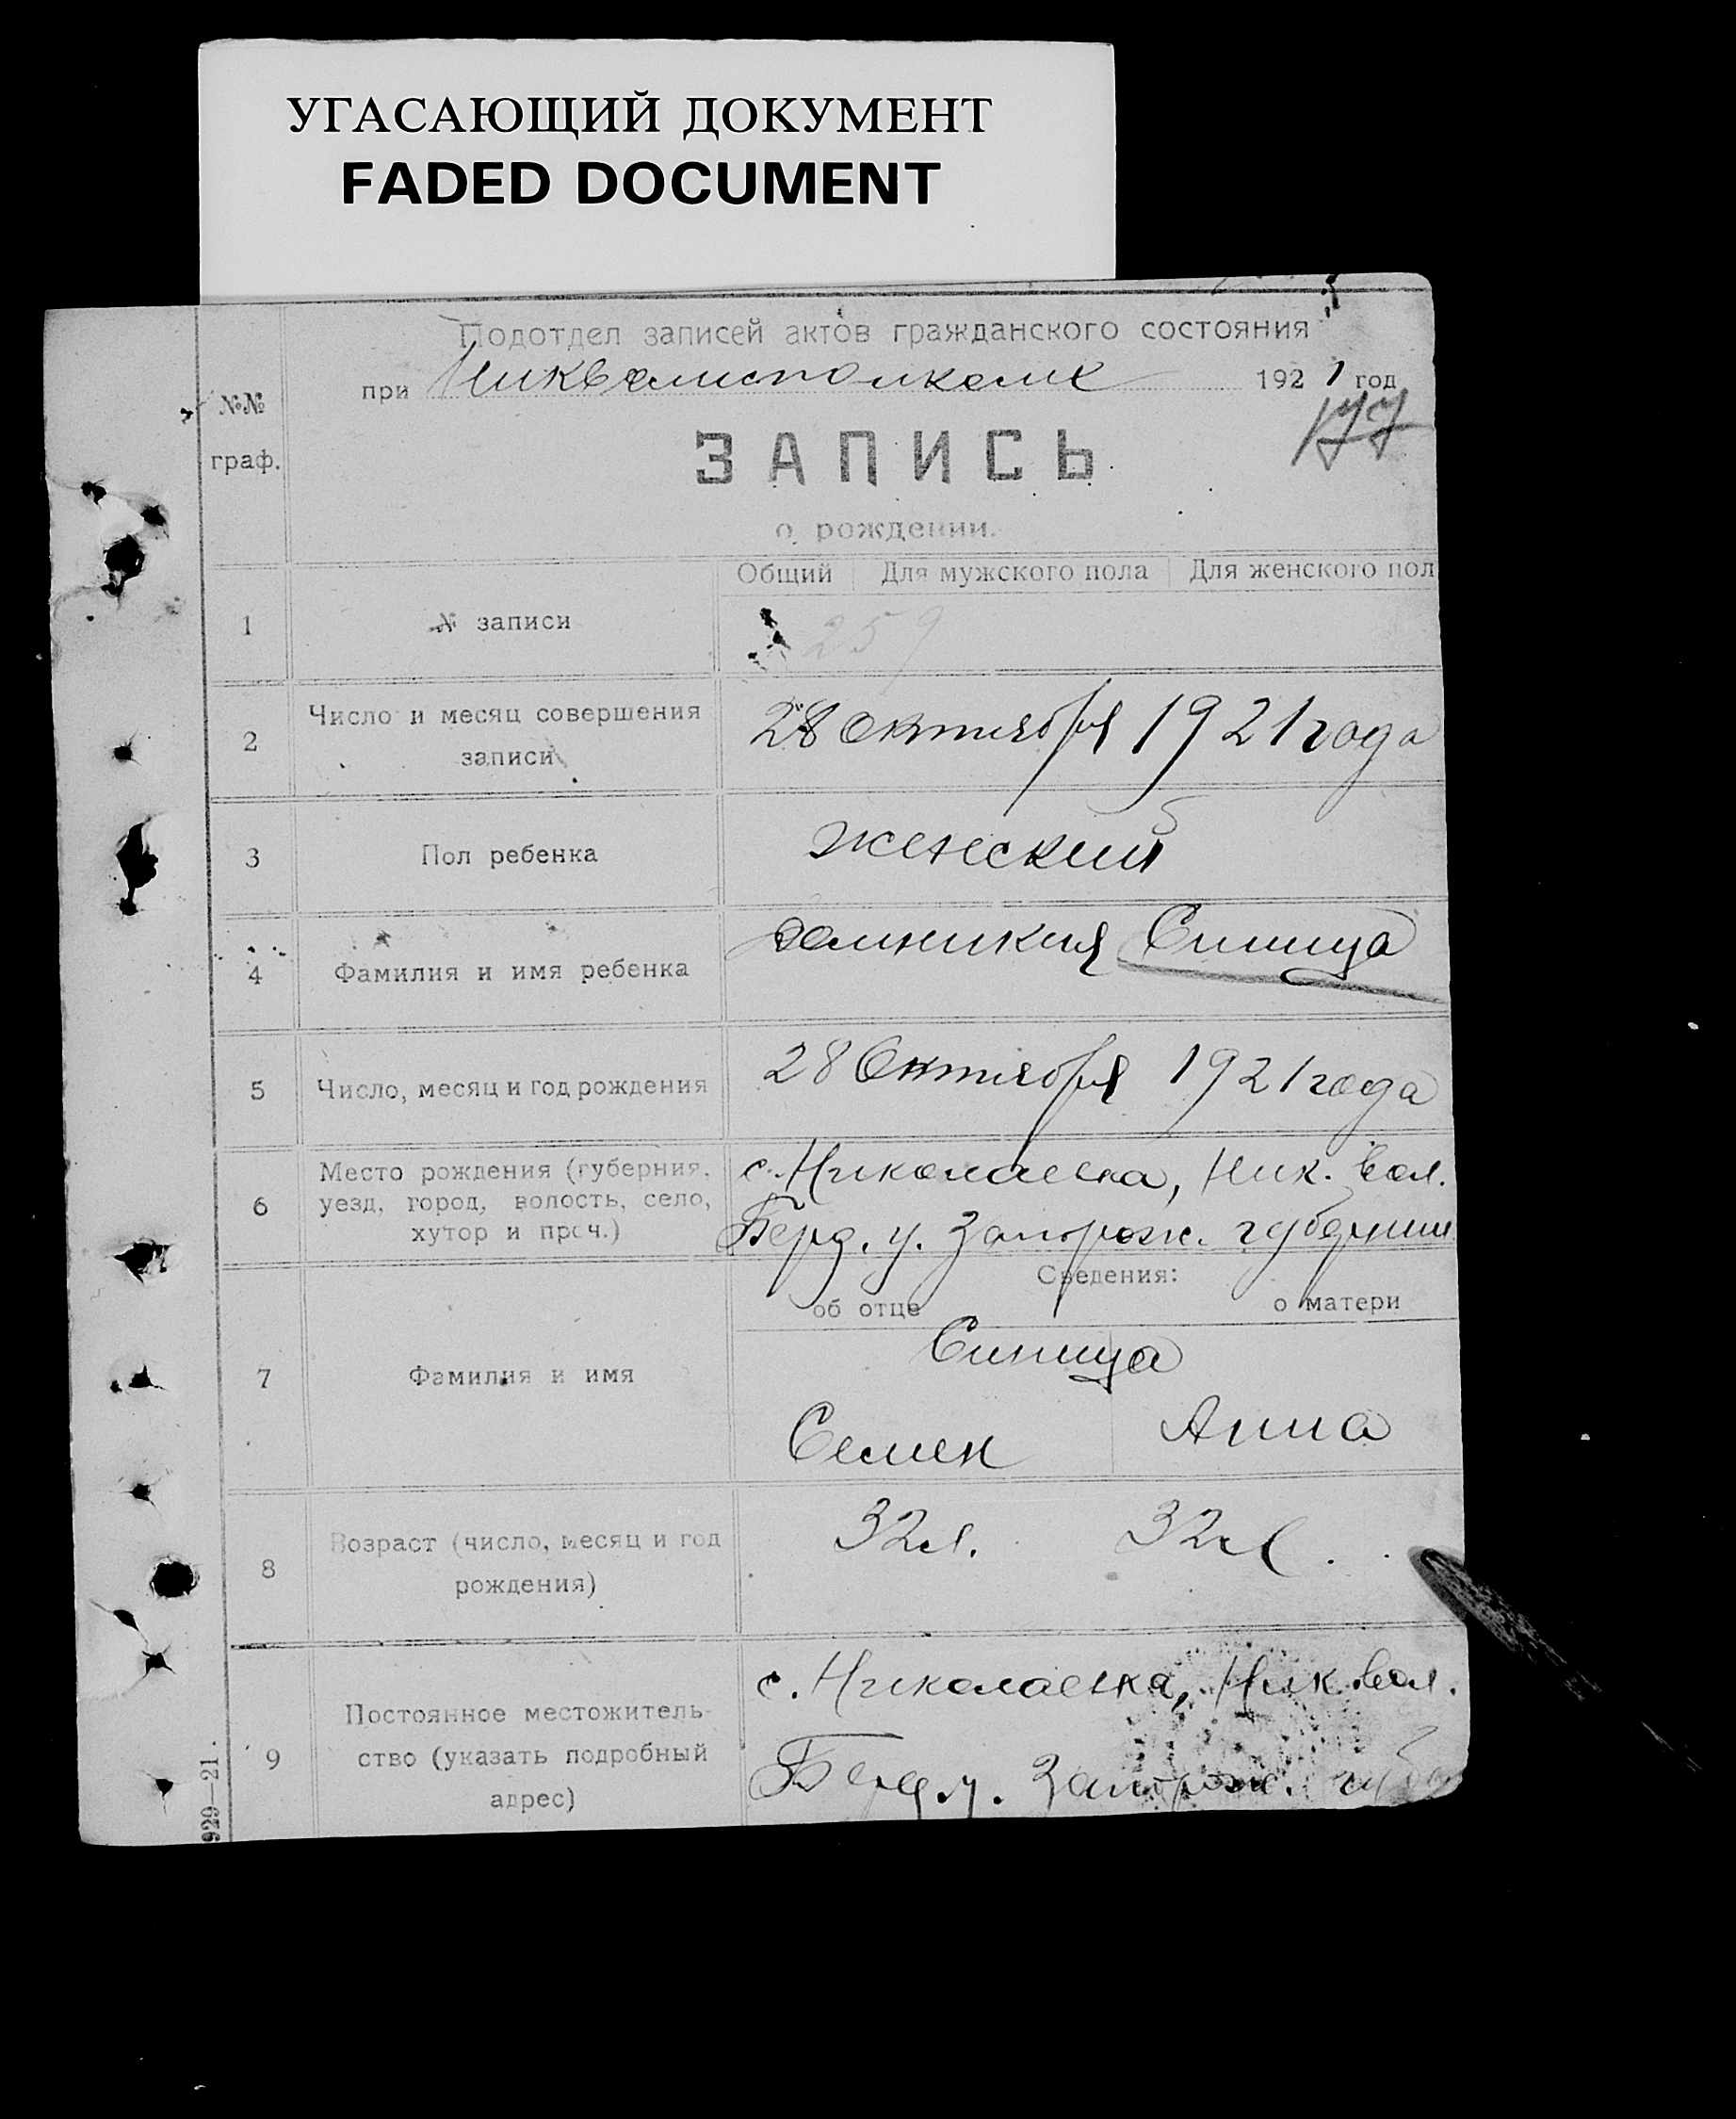 УГАСАЮЩИЙ ДОКУМЕНТ
FADED DOCUMENT
Подотдел записей актов гражданского состояния
при Никволисполкоме 1921 год
№№
граф.
ЗАПИСЬ
о рождении.
Общий Для мужского пола Для женского пол
1 № записи 259
2 Число и месяц совершения
записи
28 Октября 1921 года
3 Пол ребенка женский
4 Фамилия и имя ребенка Домникия Синица
5 Число, месяц и год рождения 28 Октября 1921 года
6 Место рождения (губерния,
уезд, город, волость, село,
хутор и проч.)
с. Николаевка, Ник. вол.
Берд. у. Запорож. губернии
Сведения:
об отце о матери
7 Фамилия и имя
Синица
Семен Анна
8 Возраст (число, месяц и год
рождения)
32 л. 32 л.
9 Постоянное местожитель-
ство (указать подробный
адрес)
с. Николаевка, Ник. вол.
Берд. у. Запорож. губ
929—21.